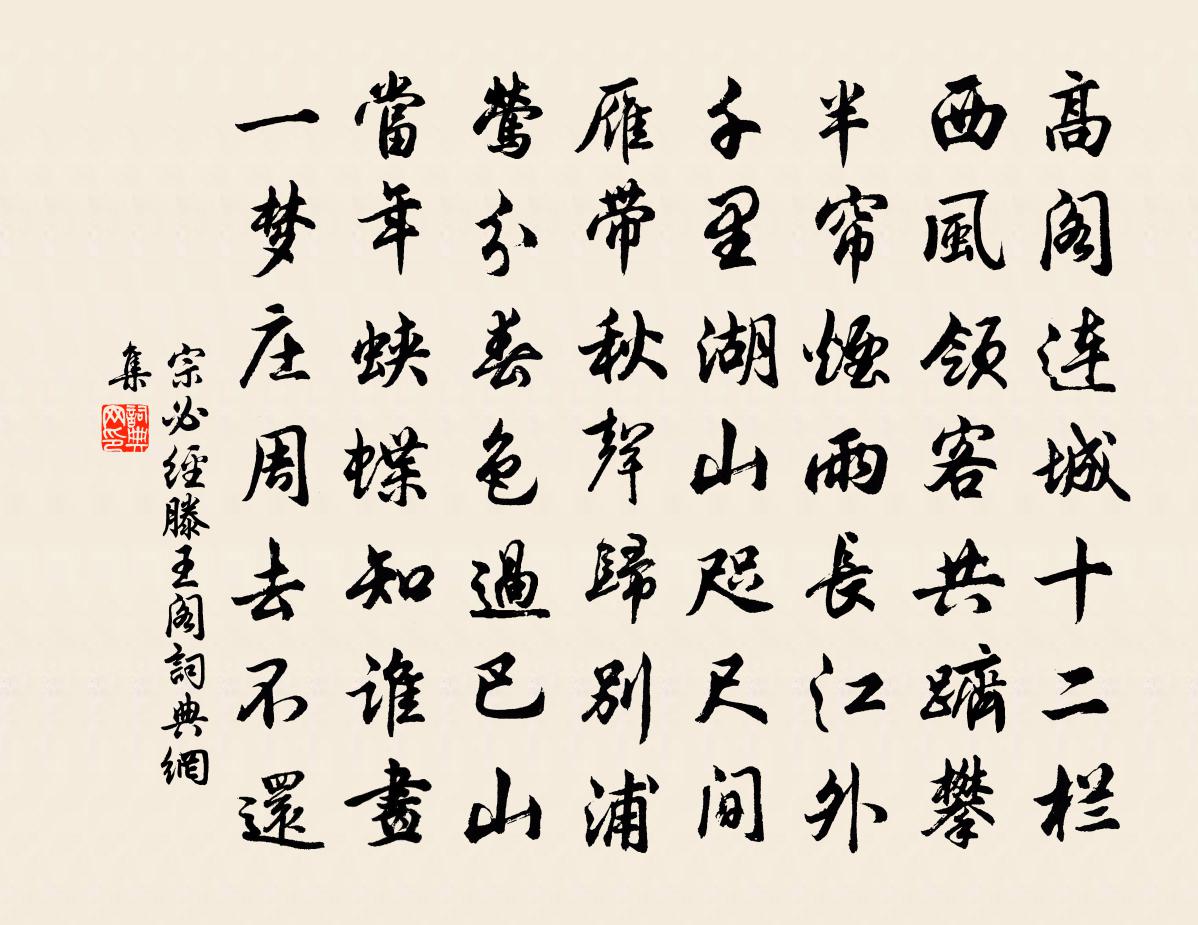 高阁连城十二栏
西風领客共躋攀
半帘煙雨長江外
千里湖山咫尺間
雁带秋聲歸别浦
莺分春色過巴山
當年蛱蝶知谁畫
一梦庄周去不還
宗必經滕王阁詞典網
集
詞典
网印